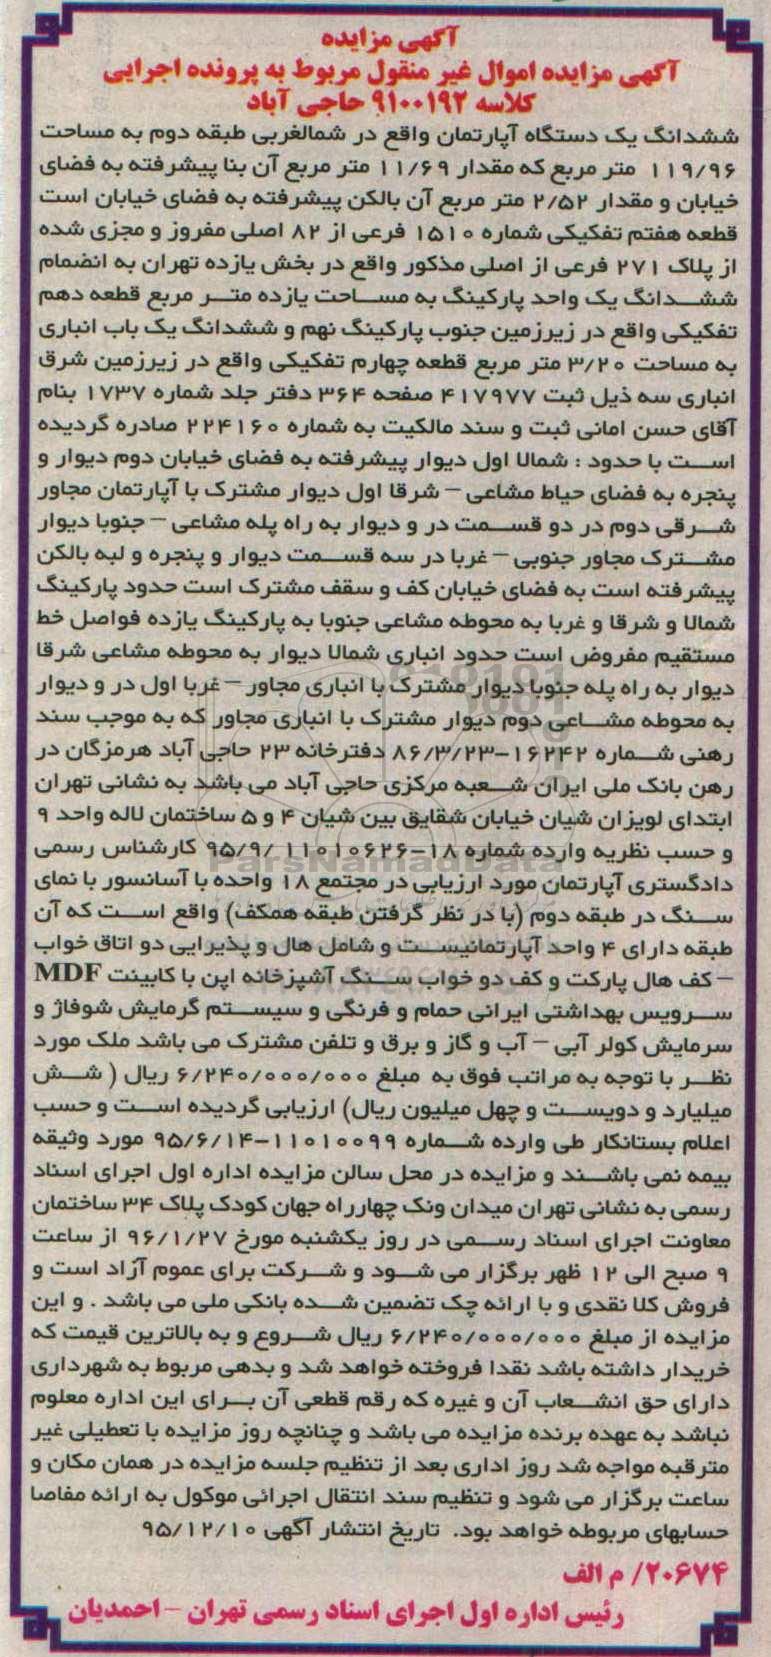 آگهی مزایده
آگهی مزایده اموال غیر منقول مربوط به پرونده اجرایی
کلاسه ۹۱۰۰۱۹۲ حاجی آباد
ششدانگ یک دستگاه آپارتمان واقع در شمالغربی طبقه دوم به مساحت
۱۱۹/۹۶ متر مربع که مقدار ۱۱/۶۹ متر مربع آن بنا پیشرفته به فضای
خیابان و مقدار ۲/۵۲ متر مربع آن بالکن پیشرفته به فضای خیابان است
قطعه هفتم تفکیکی شماره ۱۵۱۰ فرعی از ۸۲ اصلی مفروز و مجزی شده
از پلاک ۲۷۱ فرعی از اصلی مذکور واقع در بخش یازده تهران به انضمام
ششدانگ یک واحد پارکینگ به مساحت یازده متر مربع قطعه دهم
تفکیکی واقع در زیرزمین جنوب پارکینگ نهم و ششدانگ یک باب انباری
به مساحت ۳/۲۰ متر مربع قطعه چهارم تفکیکی واقع در زیرزمین شرق
انباری سه ذیل ثبت ۴۱۷۹۷۷ صفحه ۳۶۴ دفتر جلد شماره ۱۷۳۷ بنام
آقای حسن امانی ثبت و سند مالکیت به شماره ۲۲۴۱۶۰ صادره گردیده
است با حدود : شمالا اول دیوار پیشرفته به فضای خیابان دوم دیوار و
پنجره به فضای حیاط مشاعی – شرقا اول دیوار مشترک با آپارتمان مجاور
شرقی دوم در دو قسمت در و دیوار به راه پله مشاعی – جنوبا دیوار
مشترک مجاور جنوبی – غربا در سه قسمت دیوار و پنجره و لبه بالکن
پیشرفته است به فضای خیابان کف و سقف مشترک است حدود پارکینگ
شمالا و شرقا و غربا به محوطه مشاعی جنوبا به پارکینگ یازده فواصل خط
مستقیم مفروض است حدود انباری شمالا دیوار به محوطه مشاعی شرقا
دیوار به راه پله جنوبا دیوار مشترک با انباری مجاور – غربا اول در و دیوار
به محوطه مشاعی دوم دیوار مشترک با انباری مجاور که به موجب سند
رهنی شماره ۱۶۲۴۲-۸۶/۳/۲۳ دفترخانه ۲۳ حاجی آباد هرمزگان در
رهن بانک ملی ایران شعبه مرکزی حاجی آباد می باشد به نشانی تهران
ابتدای لویزان شیان خیابان شقایق بین شیان ۴ و ۵ ساختمان لاله واحد ۹
و حسب نظریه وارده شماره ۱۱۰۱۰۶۲۶-۹۵/۹/۱۸ کارشناس رسمی
دادگستری آپارتمان مورد ارزیابی در مجتمع ۱۸ واحده با آسانسور با نمای
سنگ در طبقه دوم (با در نظر گرفتن طبقه همکف) واقع است که آن
طبقه دارای ۴ واحد آپارتمانیست و شامل هال و پذیرایی دو اتاق خواب
– کف هال پارکت و کف دو خواب سنگ آشپزخانه اپن با کابینت MDF
سرویس بهداشتی ایرانی حمام و فرنگی و سیستم گرمایش شوفاژ و
سرمایش کولر آبی – آب و گاز و برق و تلفن مشترک می باشد ملک مورد
نظر با توجه به مراتب فوق به مبلغ ۶/۲۴۰/۰۰۰/۰۰۰ ریال ( شش
میلیارد و دویست و چهل میلیون ریال) ارزیابی گردیده است و حسب
اعلام بستانکار طی وارده شماره ۱۱۰۱۰۰۹۹-۹۵/۶/۱۴ مورد وثیقه
بیمه نمی باشند و مزایده در محل سالن مزایده اداره اول اجرای اسناد
رسمی به نشانی تهران میدان ونک چهارراه جهان کودک پلاک ۳۴ ساختمان
معاونت اجرای اسناد رسمی در روز یکشنبه مورخ ۹۶/۱/۲۷ از ساعت
۹ صبح الی ۱۲ ظهر برگزار می شود و شرکت برای عموم آزاد است و
فروش کلا نقدی و با ارائه چک تضمین شده بانکی ملی می باشد . و این
مزایده از مبلغ ۶/۲۴۰/۰۰۰/۰۰۰ ریال شروع و به بالاترین قیمت که
خریدار داشته باشد نقدا فروخته خواهد شد و بدهی مربوط به شهرداری
دارای حق انشعاب آن و غیره که رقم قطعی آن برای این اداره معلوم
نباشد به عهده برنده مزایده می باشد و چنانچه روز مزایده با تعطیلی غیر
مترقبه مواجه شد روز اداری بعد از تنظیم جلسه مزایده در همان مکان و
ساعت برگزار می شود و تنظیم سند انتقال اجرائی موکول به ارائه مفاصا
حسابهای مربوطه خواهد بود. تاریخ انتشار آگهی ۹۵/۱۲/۱۰
۲۰۶۷۴/ م الف
رئیس اداره اول اجرای اسناد رسمی تهران – احمدیان
ParsNamadData